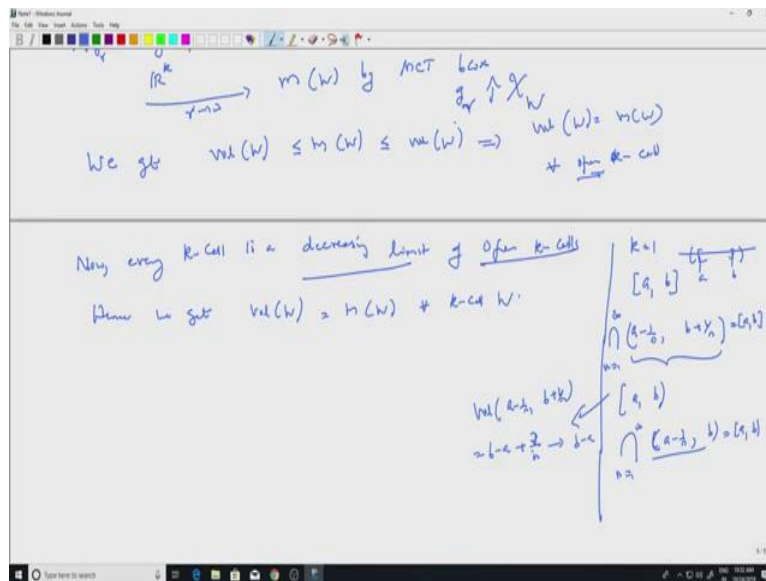 Note1 - Windows Journal
File Edit View Insert Actions Tools Help
ℝᵏ
r→∞ → m(W) by MCT bcoz
g_r ↑ χ_W
We get vol(W) ≤ m(W) ≤ vol(W) ⇒ vol(W) = m(W)
∀ open k-cell
Now, every k-cell is a decreasing limit of open k-cells
Hence we get vol(W) = m(W) ∀ k-cell W.
k=1
a b
[a, b]
∞ ⋂ n=1 (a-1/n, b+1/n) = [a,b]
[a, b)
∞ ⋂ n=1 (a-1/n, b) = [a,b)
Vol(a-1/n, b+1/n)
= b-a+2/n → b-a
5/5
Type here to search
ENG